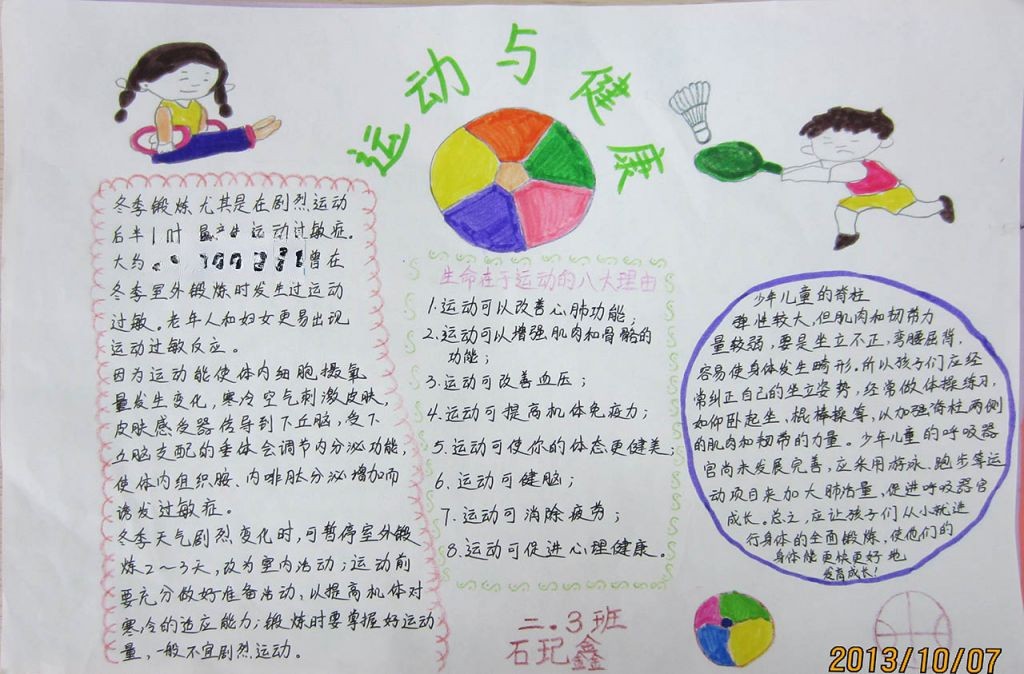 运动与健康
冬季锻炼尤其是在剧烈运动
后半小时 易产生运动过敏症。
大约 曾在
冬季室外锻炼时发生过运动
过敏。老年人和妇女更易出现
运动过敏反应。
因为运动能使体内细胞摄氧
量发生变化,寒冷空气刺激皮肤,
皮肤感受器传导到下丘脑,受下
丘脑支配的垂体会调节内分泌功能,
使体内组织胺、内啡肽分泌增加而
诱发过敏症。
冬季天气剧烈变化时,可暂停室外锻
炼2~3天,改为室内活动;运动前
要充分做好准备活动,以提高机体对
寒冷的适应能力;锻炼时要掌握好运动
量,一般不宜剧烈运动。
生命在于运动的八大理由
1.运动可以改善心肺功能;
2.运动可以增强肌肉和骨骼的
功能;
3.运动可改善血压;
4.运动可提高机体免疫力;
5.运动可使你的体态更健美;
6.运动可健脑;
7.运动可消除疲劳;
8.运动可促进心理健康。
二.3班
石玘鑫
少年儿童的脊柱
弹性较大,但肌肉和韧带力
量较弱,要是坐立不正,弯腰屈背,
容易使身体发生畸形。所以孩子们应经
常纠正自己的坐立姿势,经常做体操练习,
如仰卧起坐,棍棒操等,以加强脊柱两侧
的肌肉和韧带的力量。少年儿童的呼吸器
官尚未发展完善,应采用游泳、跑步等运
动项目来加大肺活量,促进呼吸器官
成长。总之,应让孩子们从小就进
行身体的全面锻炼,使他们的
身体能更快更好地
发育成长!
2013/10/07